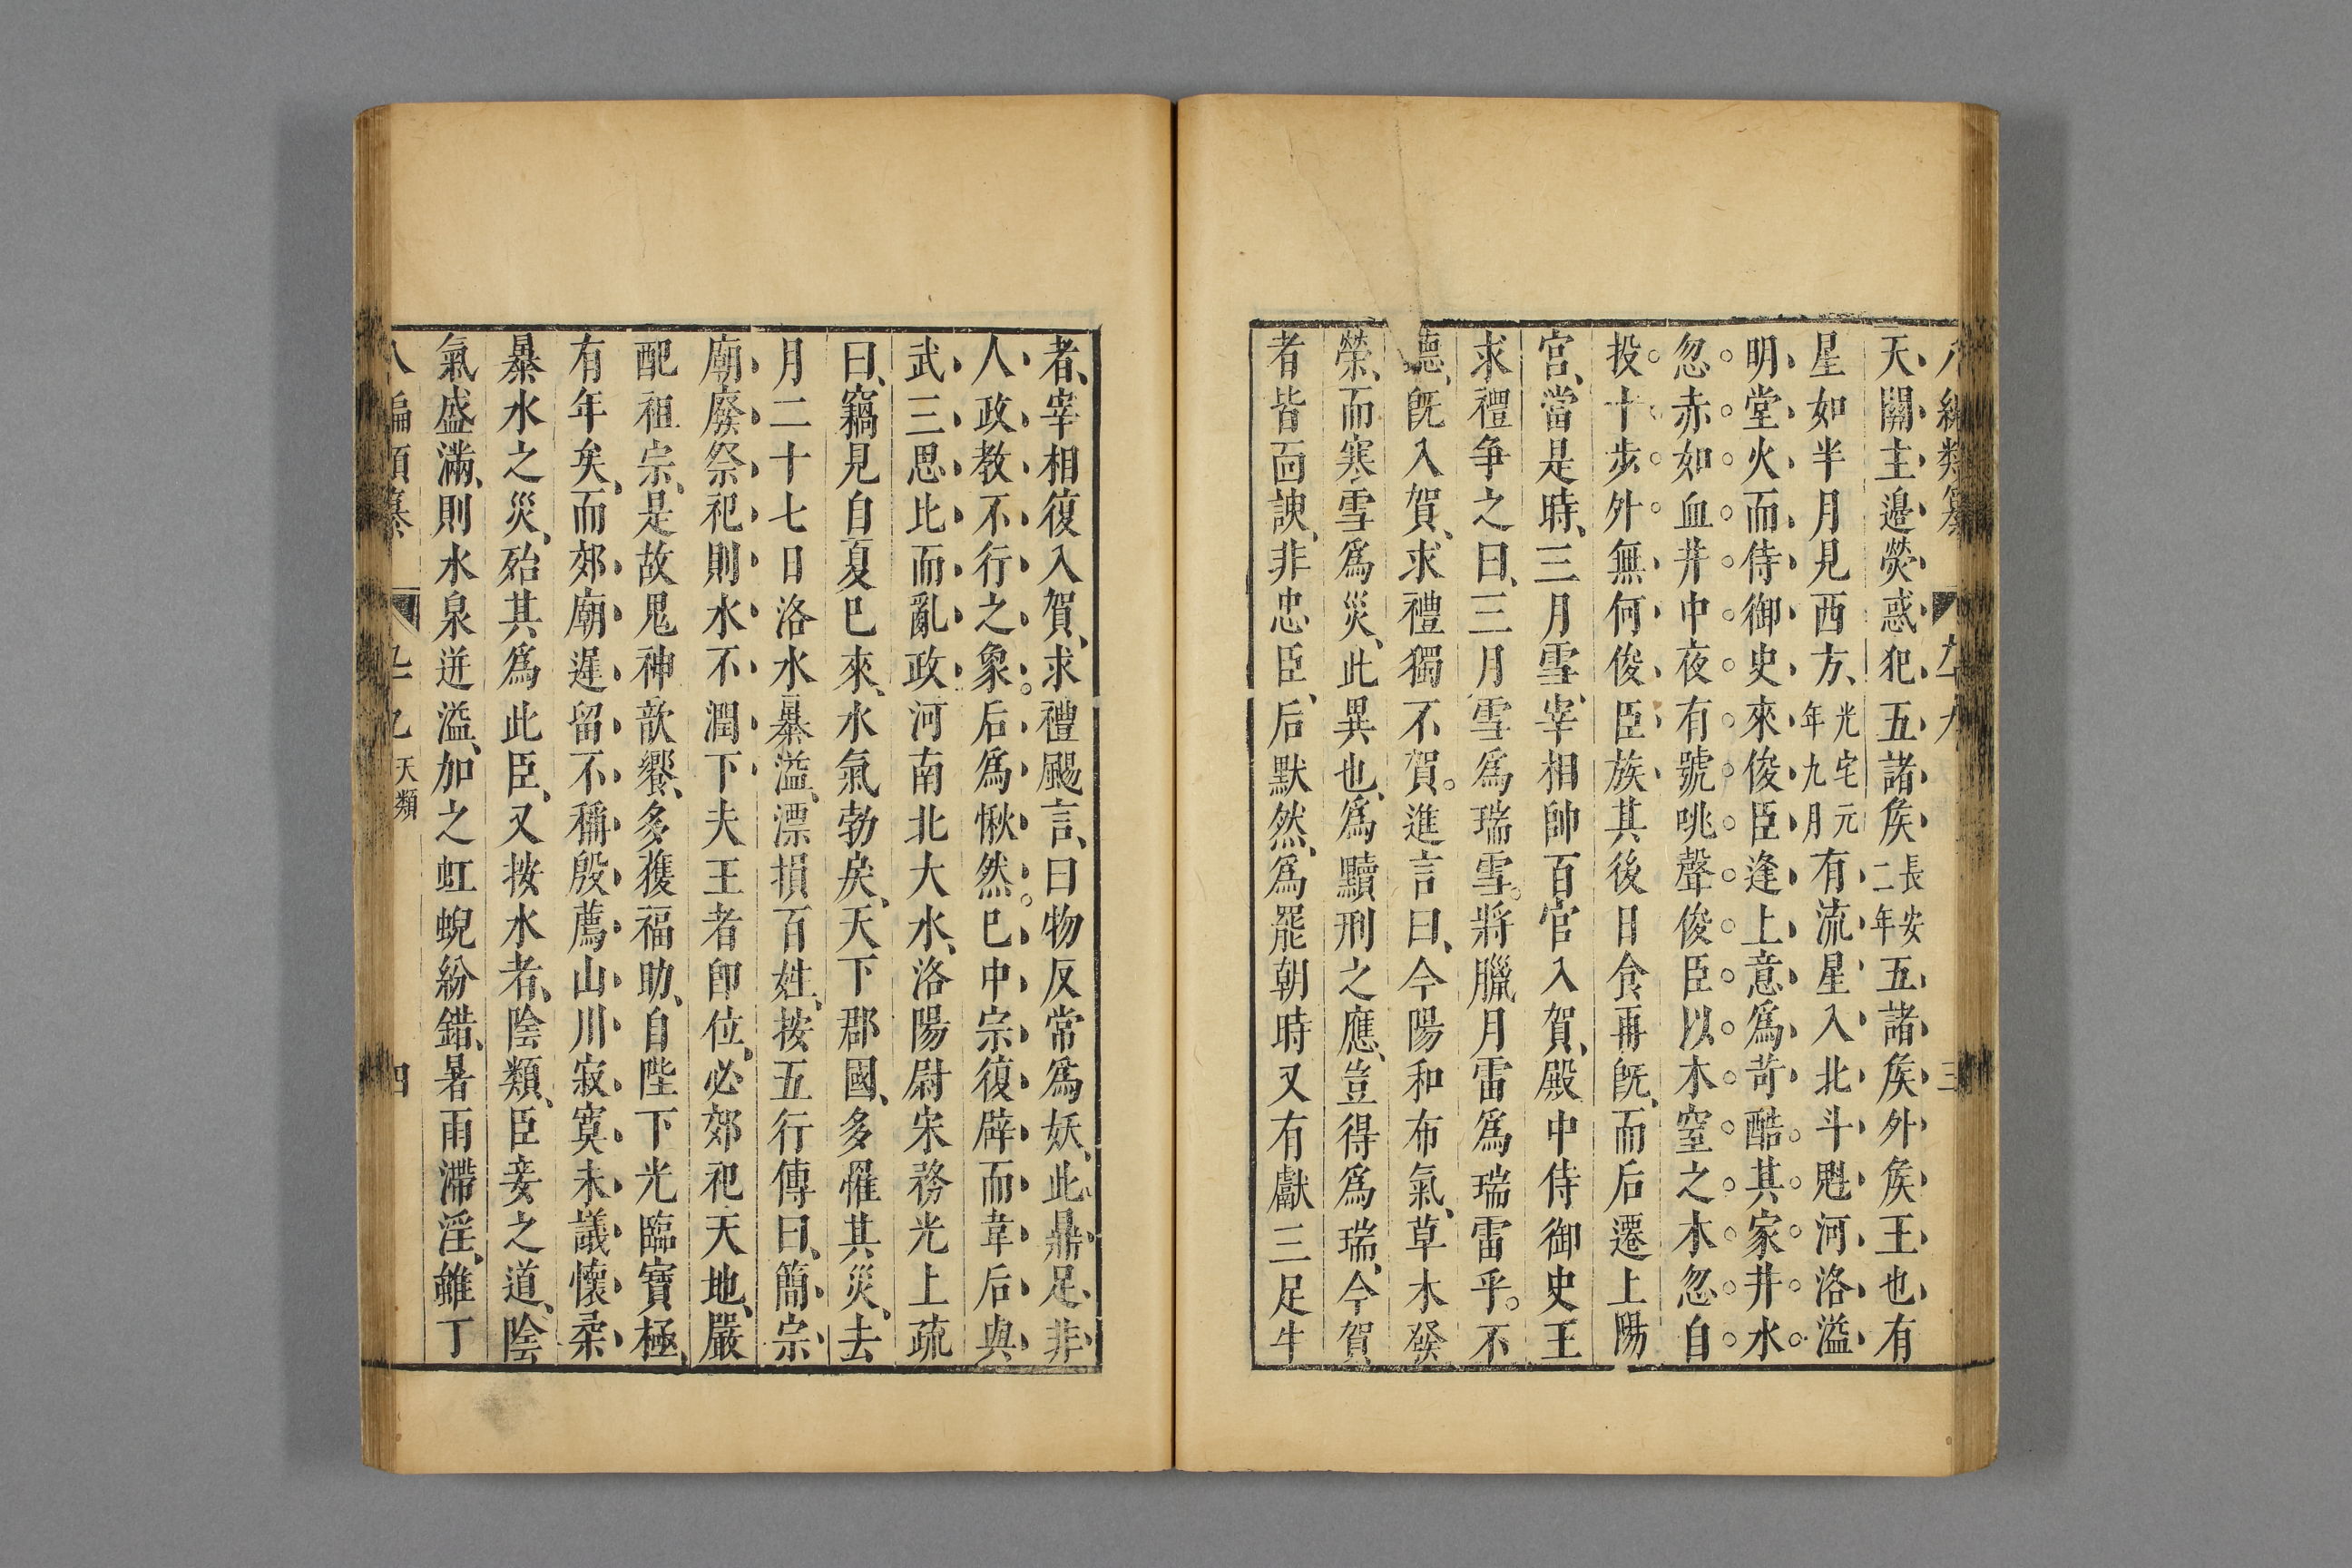 八編類纂 九十九 三
天關主邉熒惑犯五諸矦長安二年五諸矦外矦王也有
星如半月見西方光宅元年九月有流星入北斗魁河洛溢
明堂火而侍御史來俊臣逢上意爲苛酷其家井水
忽赤如血井中夜有號咷聲俊臣以木窒之木忽自
投十步外無何俊臣族其後日食再旣而后遷上陽
宮當是時三月雪宰相帥百官入賀殿中侍御史王
求禮爭之曰三月雪爲瑞雪將臘月雷爲瑞雷乎不
聽旣入賀求禮獨不賀進言曰今陽和布氣草木發
榮而寒雪爲災此異也爲黷刑之應豈得爲瑞今賀
者皆面諛非忠臣后默然爲罷朝時又有獻三足牛
者宰相復入賀求禮颺言曰物反常爲妖此鼎足非
人政教不行之象后爲愀然巳中宗復辟而韋后與
武三思比而亂政河南北大水洛陽尉宋務光上疏
曰竊見自夏巳來水氣勃戾天下郡國多罹其災去
月二十七日洛水暴溢漂損百姓按五行傳曰簡宗
廟廢祭祀則水不潤下夫王者卽位必郊祀天地嚴
配祖宗是故鬼神歆饗多獲福助自陛下光臨寶極
有年矣而郊廟遲留不稱殷薦山川寂寞未議懷柔
暴水之災殆其爲此臣又按水者陰類臣妾之道陰
氣盛滿則水泉迸溢加之虹蜺紛錯暑雨滯淫雖丁
八編類纂 九十九 天類 四